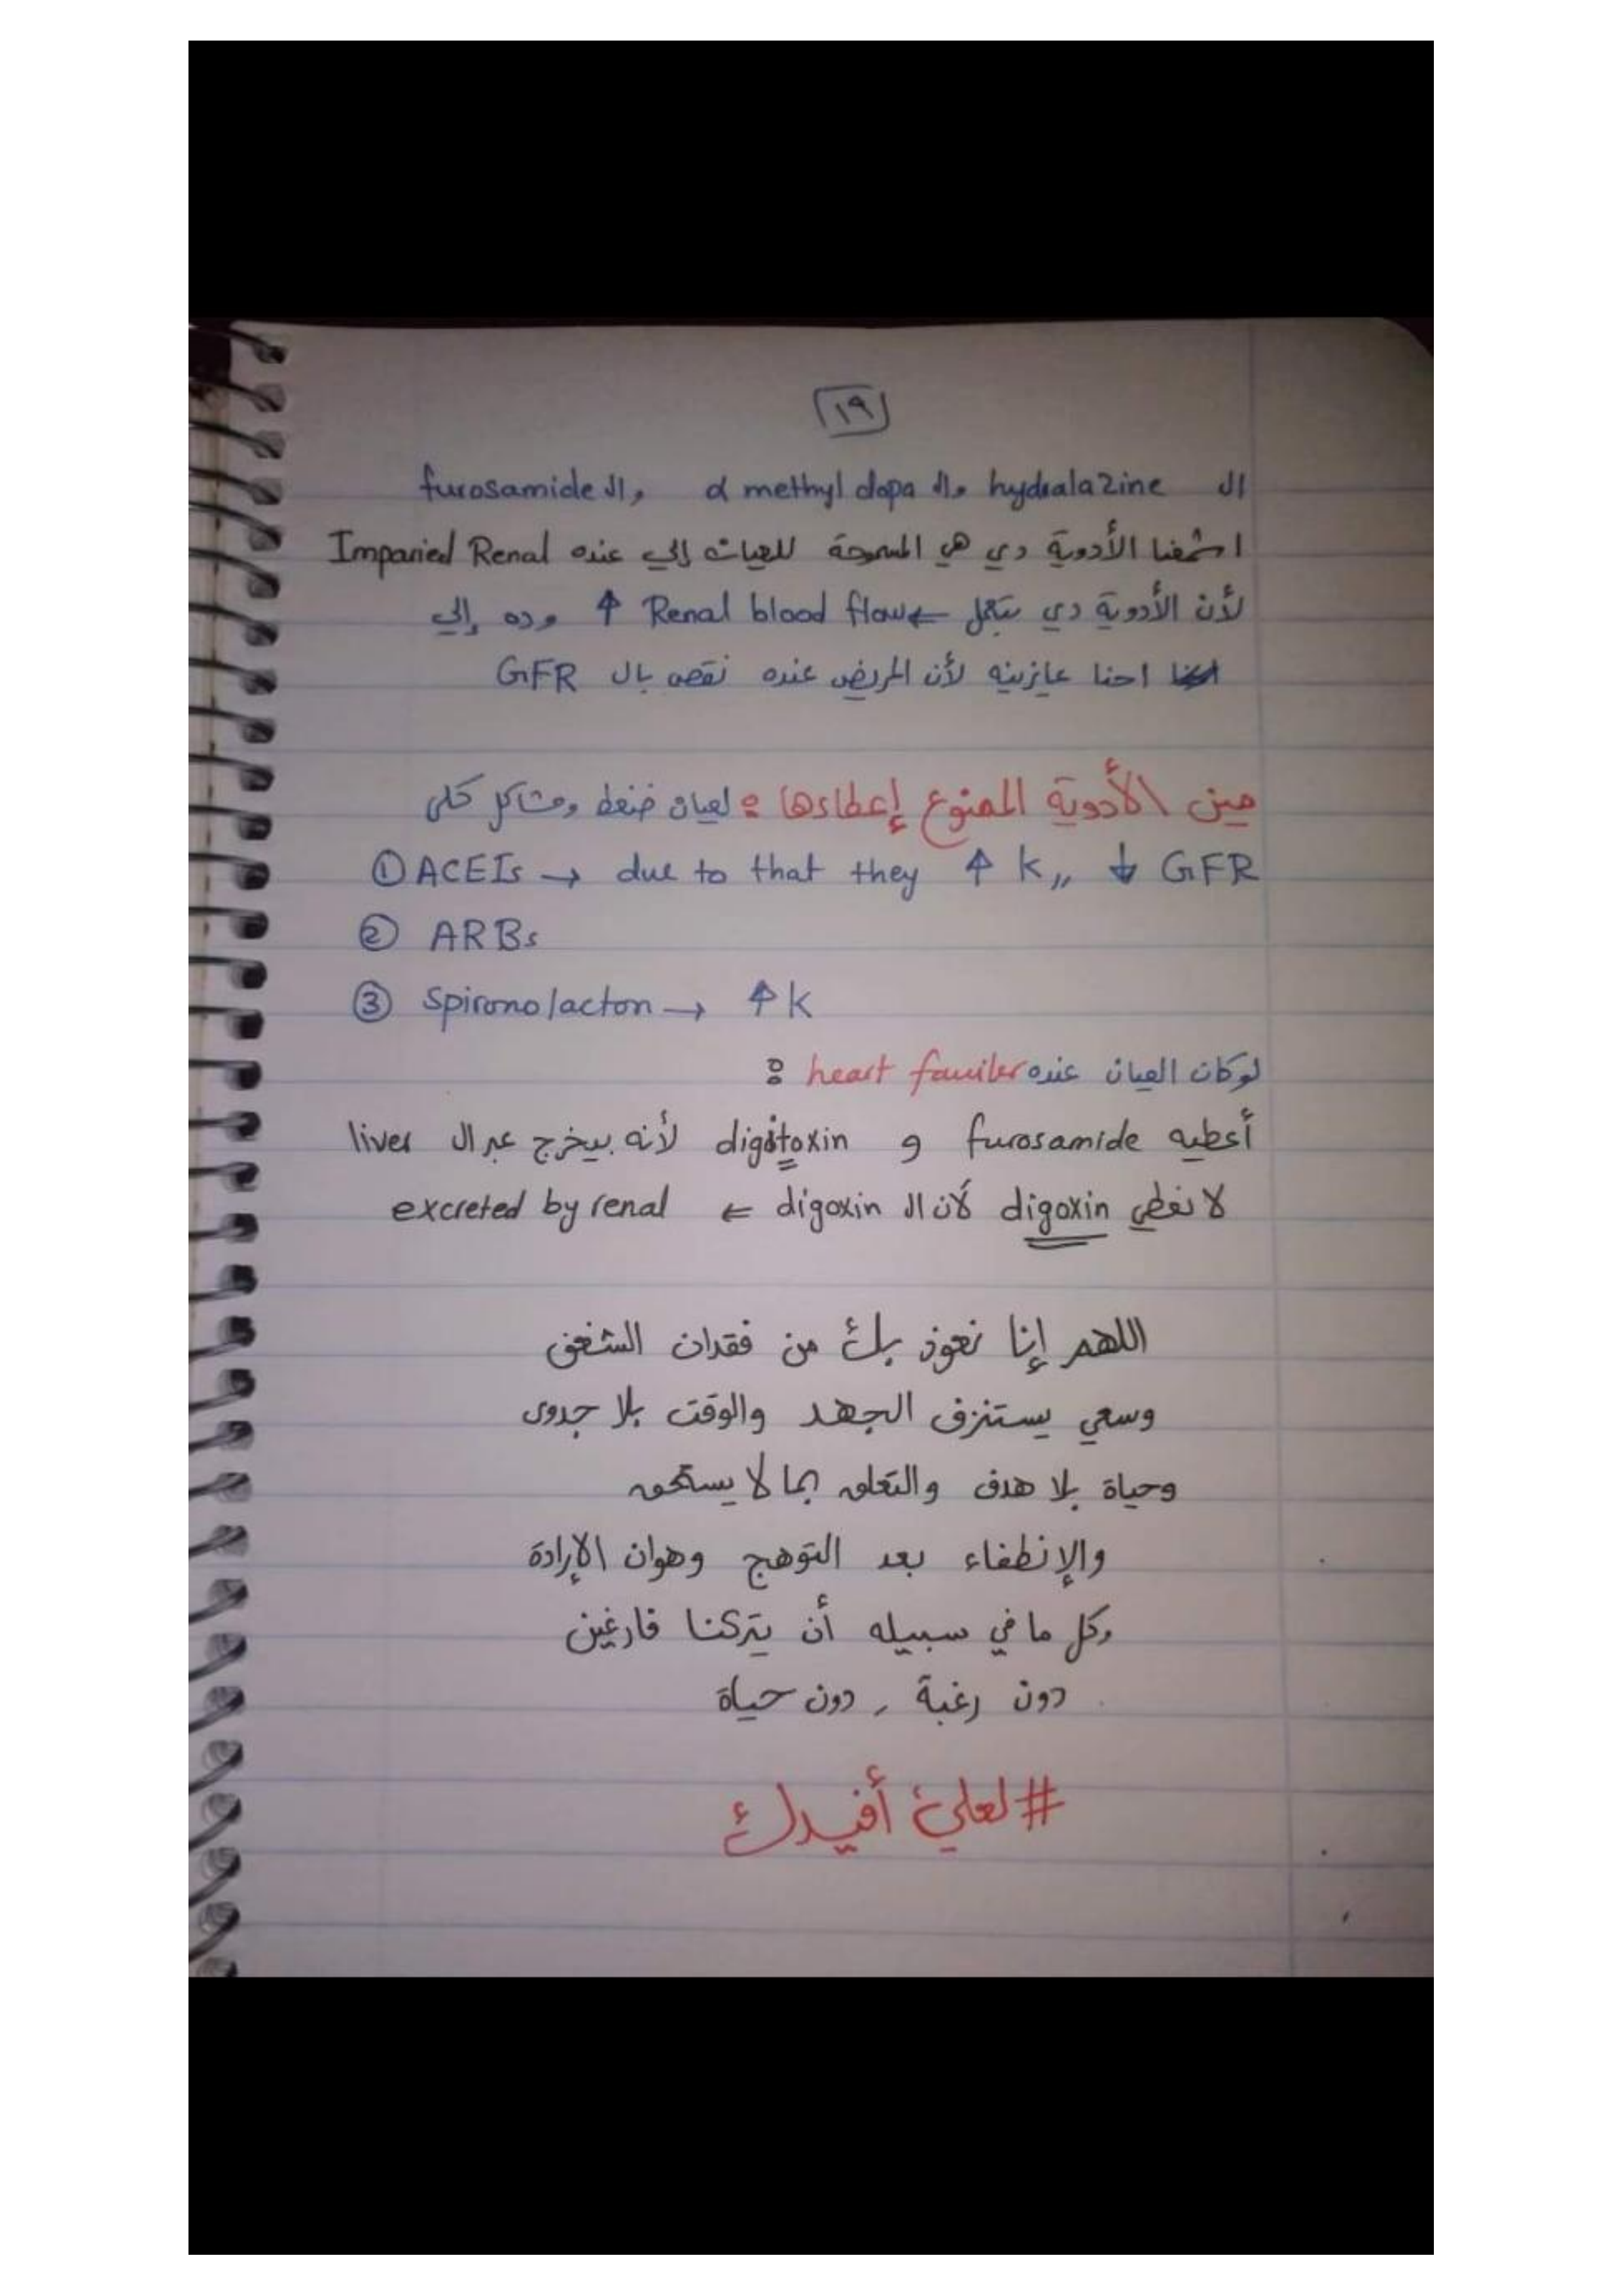 ١٩
ال hydralazine وال α methyl dopa وال furosamide
اشمعنا الأدوية دي هي المسموحة للعيان إلي عنده Imparied Renal
لأن الأدوية دي بتعمل ← Renal blood flow ↑ وده إلي
احنا عايزينه لأن المريض عنده نقص بال GFR
مين الأدوية الممنوع إعطاءها : لعيان ضغط ومشاكل كلى
① ACEIs → due to that they ↑ K,, ↓ GFR
② ARBs
③ Spironolacton → ↑ K
لو كان العيان عنده heart fauiler :
أعطيه furosamide و digitoxin لأنه بيخرج عبر ال liver
لا نعطي digoxin لأن ال digoxin ⇐ excreted by renal
اللهم إنا نعوذ بك من فقدان الشغف
وسعي يستنزف الجهد والوقت بلا جدوى
وحياة بلا هدف والتعلق بما لا يستحق
والإنطفاء بعد التوهج وهوان الإرادة
وكل ما في سبيله أن يتركنا فارغين
دون رغبة , دون حياة
#لعلي أفيدك